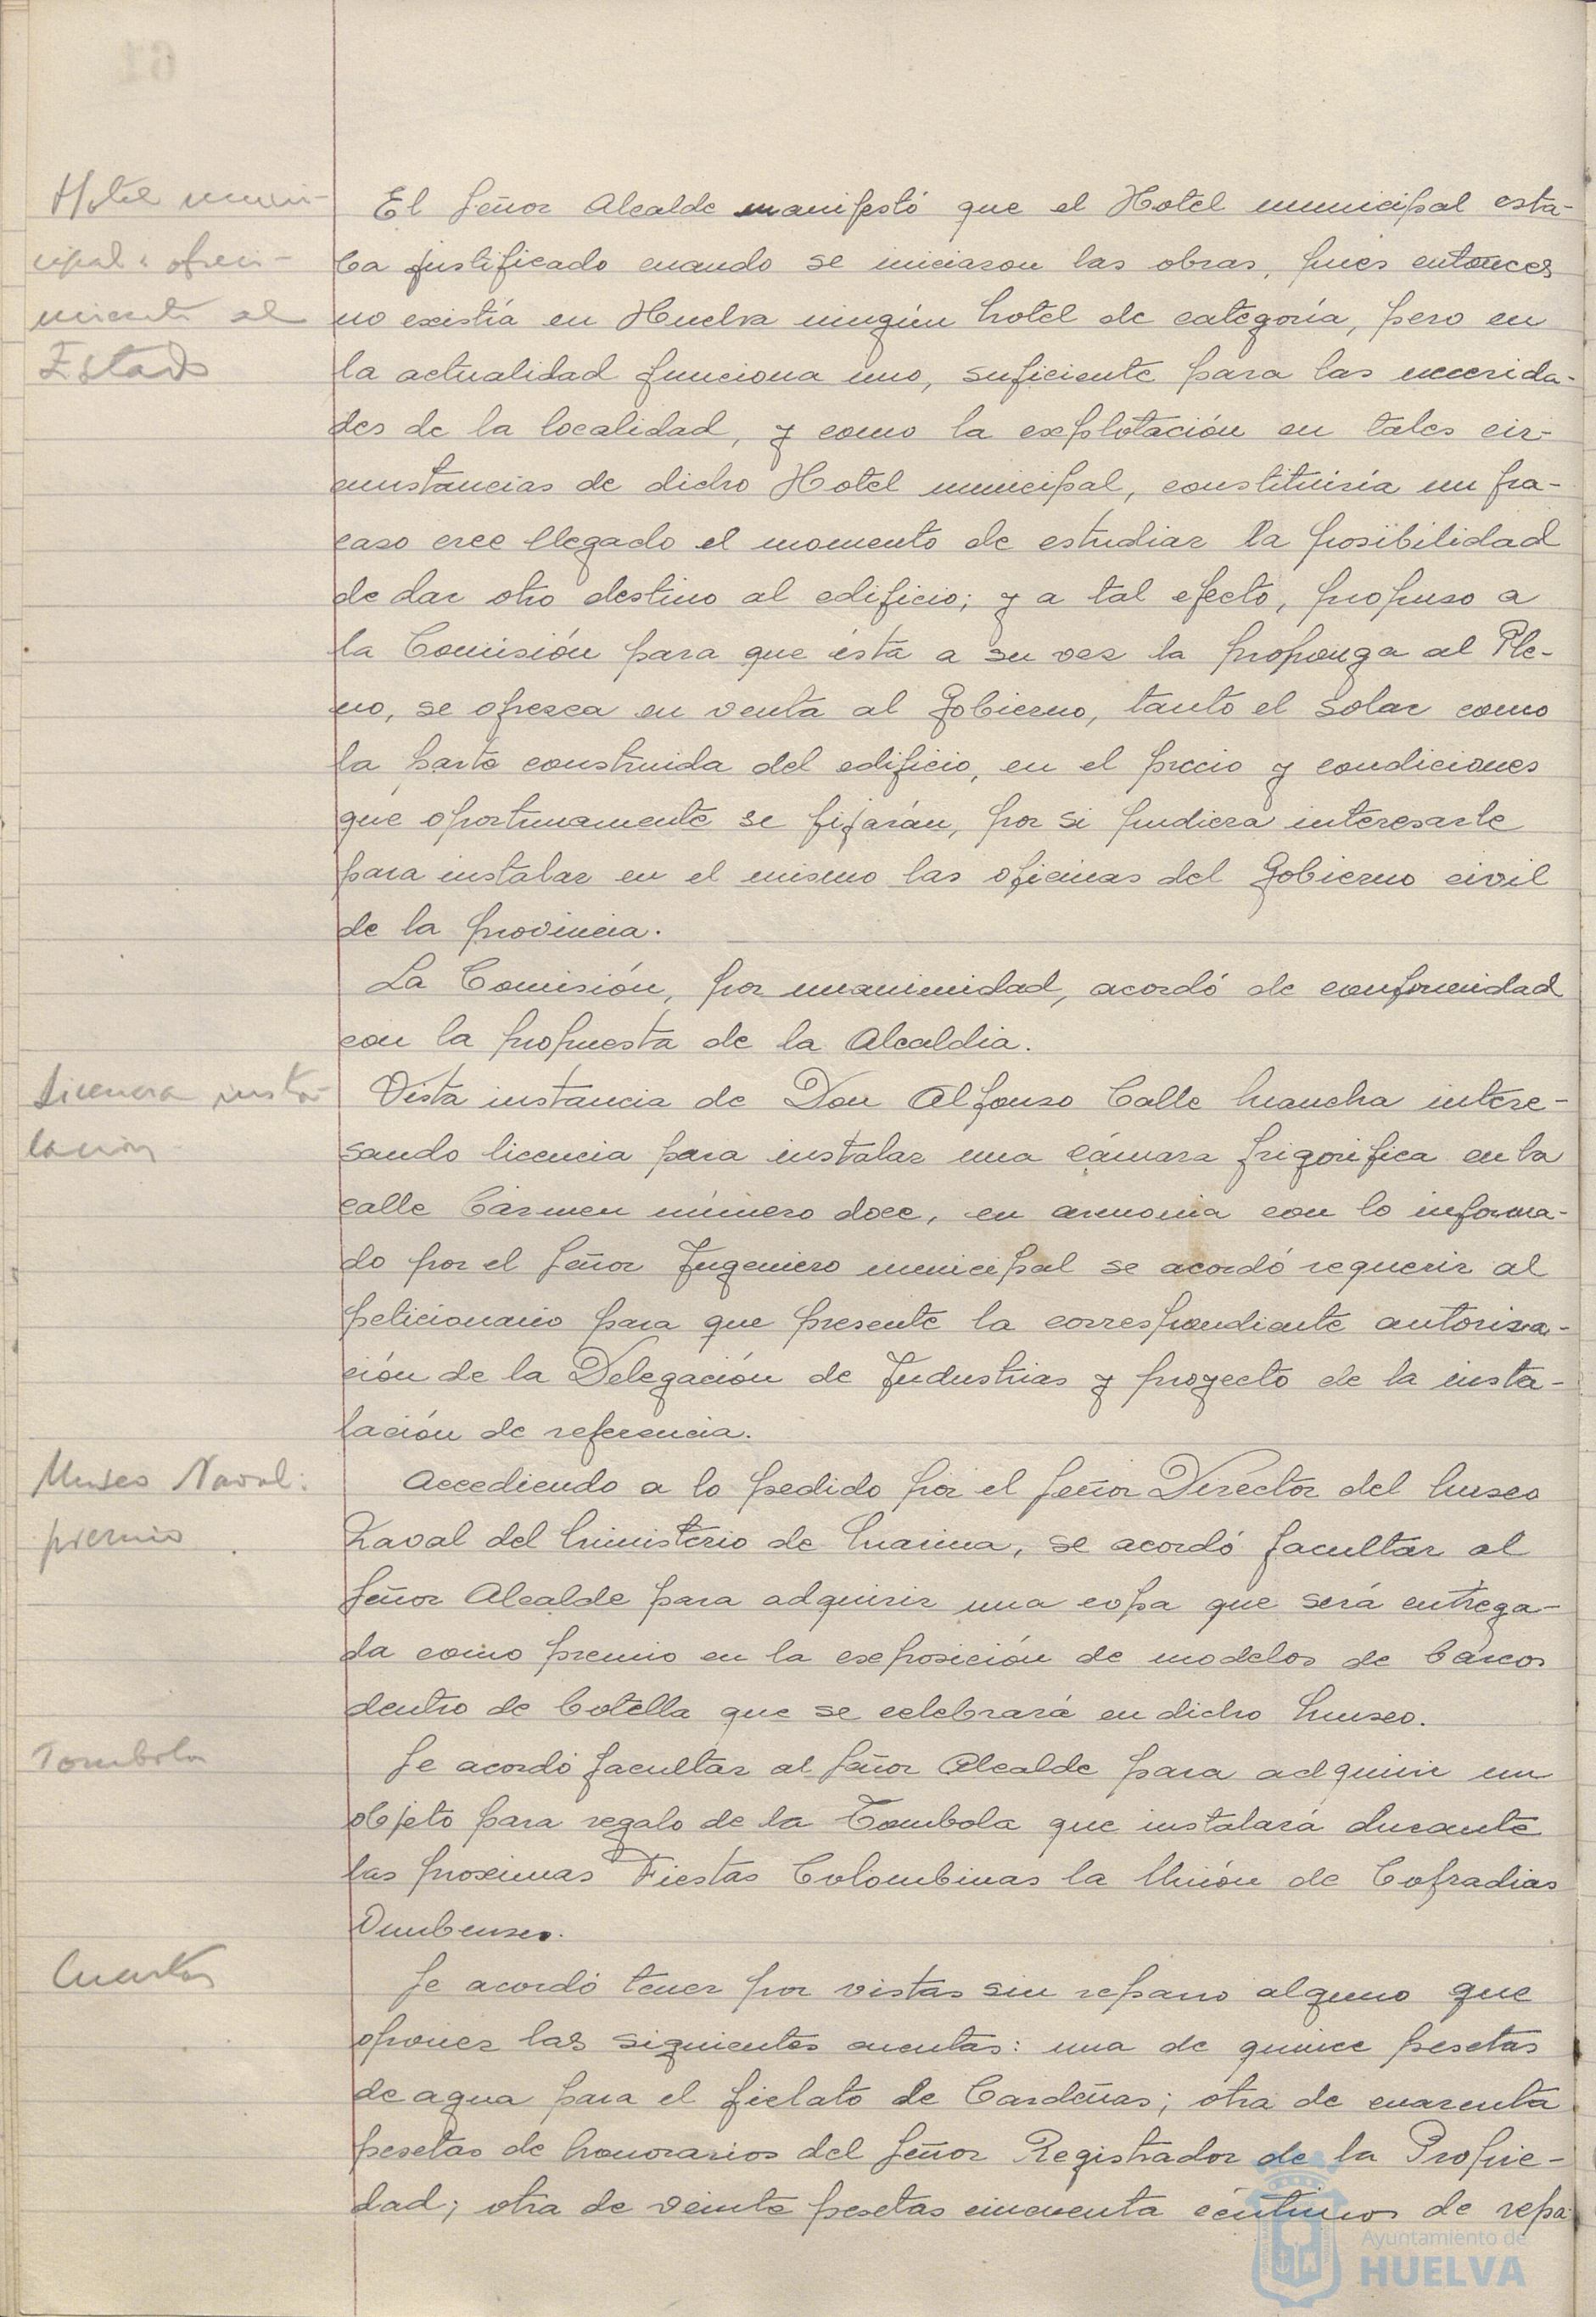 Hotel muni-
cipal: ofreci-
miento al
Estado
El Señor Alcalde manifestó que el Hotel municipal esta-
ba justificado cuando se iniciaron las obras, pues entonces
no existía en Huelva ningún hotel de categoría, pero en
la actualidad funciona uno, suficiente para las necesida-
des de la localidad, y como la explotación en tales cir-
cunstancias de dicho Hotel municipal, constituiría un fra-
caso cree llegado el momento de estudiar la posibilidad
de dar otro destino al edificio; y a tal efecto, propuso a
la Comisión para que ésta a su vez la proponga al Ple-
no, se ofrezca en venta al Gobierno, tanto el solar como
la parte construida del edificio, en el precio y condiciones
que oportunamente se fijarán, por si pudiera interesarle
para instalar en el mismo las oficinas del Gobierno civil
de la provincia.
La Comisión, por unanimidad, acordó de conformidad
con la propuesta de la Alcaldia.
Licencia insta-
lación
Vista instancia de Don Alfonso Calle Mancha intere-
sando licencia para instalar una cámara frigorifica en la
calle Cármen número doce, en armonia con lo informa-
do por el Señor Ingeniero municipal se acordó requerir al
peticionario para que presente la correspondiente autoriza-
ción de la Delegación de Industrias y proyecto de la insta-
lación de referencia.
Museo Naval:
premio
Accediendo a lo pedido por el Señor Director del Museo
Naval del Ministerio de Marina, se acordó facultar al
Señor Alcalde para adquirir una copa que será entrega-
da como premio en la exposición de modelos de barcos
dentro de botella que se celebrará en dicho Museo.
Tombola
Se acordó facultar al Señor Alcalde para adquirir un
objeto para regalo de la Tombola que instalará durante
las proximas Fiestas Colombinas la Unión de Cofradias
Onubenses.
Cuentas
Se acordó tener por vistas sin reparo alguno que
oponer las siguientes cuentas: una de quince pesetas
de agua para el fielato de Cardeñas; otra de cuarenta
pesetas de honorarios del Señor Registrador de la Propie-
dad; otra de veinte pesetas cincuenta céntimos de repa
Ayuntamiento de
HUELVA